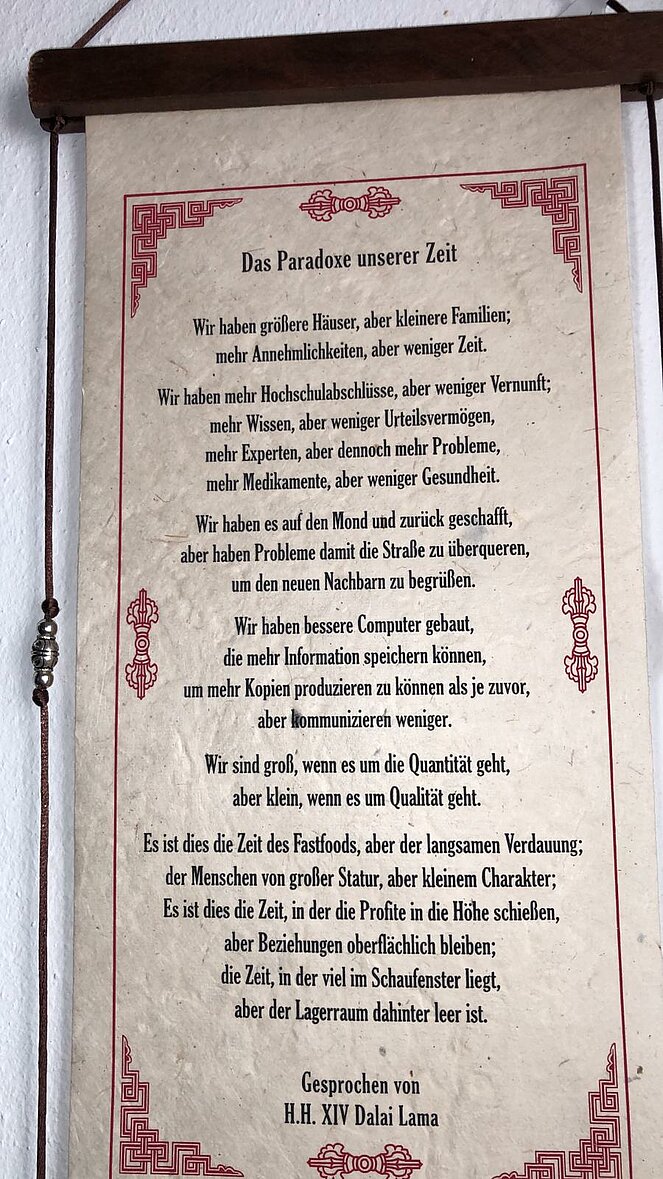 Das Paradoxe unserer Zeit
Wir haben größere Häuser, aber kleinere Familien;
mehr Annehmlichkeiten, aber weniger Zeit.
Wir haben mehr Hochschulabschlüsse, aber weniger Vernunft;
mehr Wissen, aber weniger Urteilsvermögen,
mehr Experten, aber dennoch mehr Probleme,
mehr Medikamente, aber weniger Gesundheit.
Wir haben es auf den Mond und zurück geschafft,
aber haben Probleme damit die Straße zu überqueren,
um den neuen Nachbarn zu begrüßen.
Wir haben bessere Computer gebaut,
die mehr Information speichern können,
um mehr Kopien produzieren zu können als je zuvor,
aber kommunizieren weniger.
Wir sind groß, wenn es um die Quantität geht,
aber klein, wenn es um Qualität geht.
Es ist dies die Zeit des Fastfoods, aber der langsamen Verdauung;
der Menschen von großer Statur, aber kleinem Charakter;
Es ist dies die Zeit, in der die Profite in die Höhe schießen,
aber Beziehungen oberflächlich bleiben;
die Zeit, in der viel im Schaufenster liegt,
aber der Lagerraum dahinter leer ist.
Gesprochen von
H.H. XIV Dalai Lama